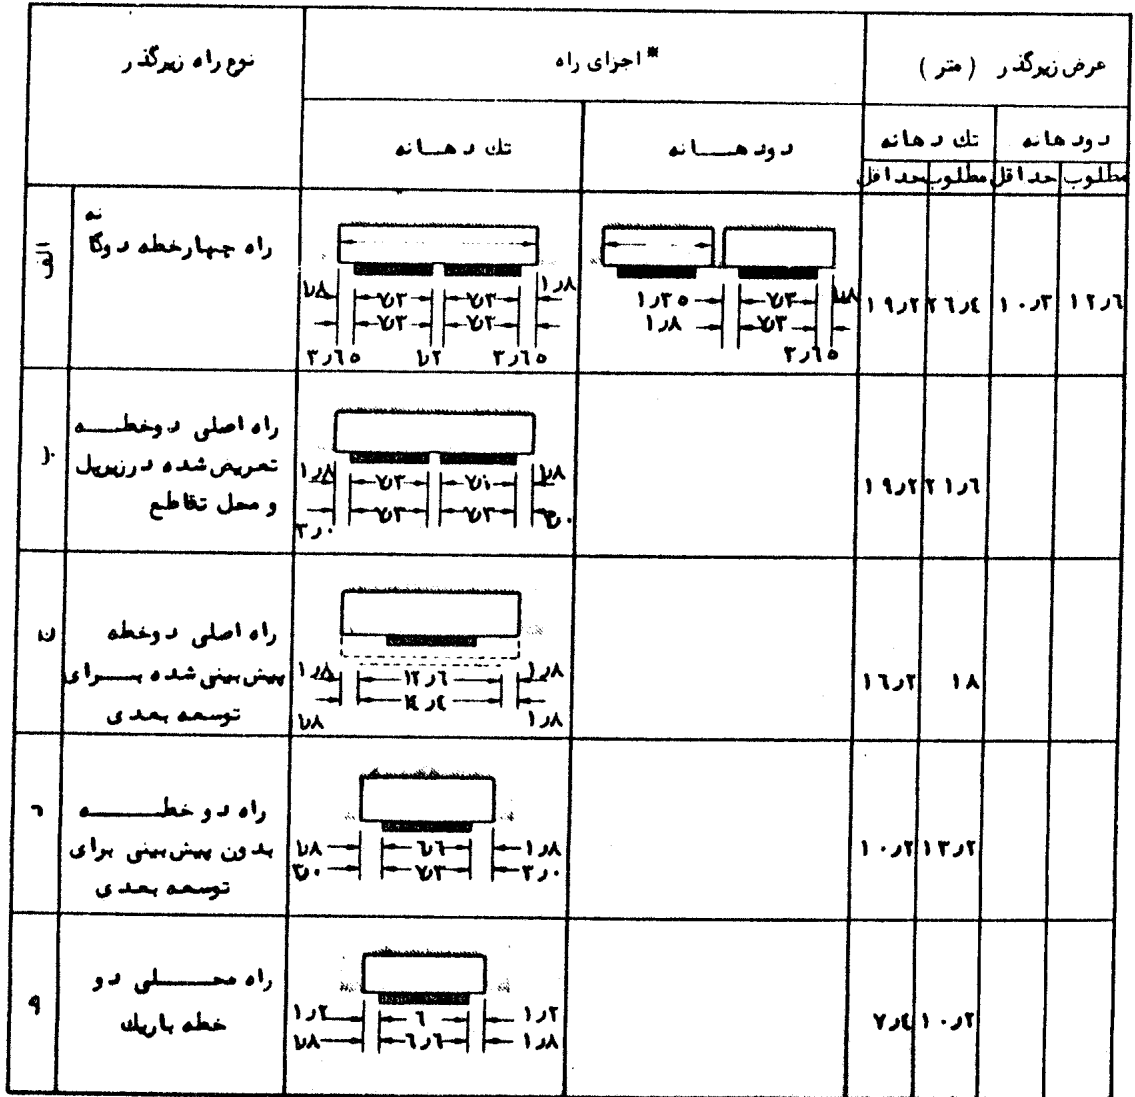 نوع راه زیرگذر
* اجزای راه
عرض زیرگذر ( متر )
تك دهــانه
دودهــــانه
تك دهانه
دودهانه
حداقل
مطلوب
حداقل
مطلوب
الف
راه چهارخطه دوگا
نه
۱٫۸
۷٫۳
۷٫۳
۱٫۸
۷٫۳
۷٫۳
۳٫۶۵
۱٫۲
۳٫۶۵
۱٫۲۵
۷٫۳
۱٫۸
۱٫۸
۷٫۳
۳٫۶۵
۱۹٫۲
۲۶٫۴
۱۰٫۳
۱۲٫۶
ب
راه اصلی دوخطــــه
تعریض شده درزیرپل
و محل تقاطع
۱٫۸
۷٫۳
۱٫۸
۷٫۳
۷٫۳
۳٫۰
۳٫۰
۱۹٫۲
۲۱٫۶
راه اصلی دوخطه
پیش بینی شده بــــرای
توسعه بعدی
۱٫۸
۱۲٫۶
۱٫۸
۱۴٫۴
۱٫۸
۱٫۸
۱۶٫۲
۱۸
راه دو خطــــــه
بدون پیش بینی برای
توسعه بعدی
۱٫۸
۶٫۶
۱٫۸
۳٫۰
۷٫۳
۳٫۰
۱۰٫۲
۱۳٫۲
راه محـــــلی دو
خطه باریك
۱٫۲
۶
۱٫۲
۱٫۸
۶٫۶
۱٫۸
۷٫۴
۱۰٫۲